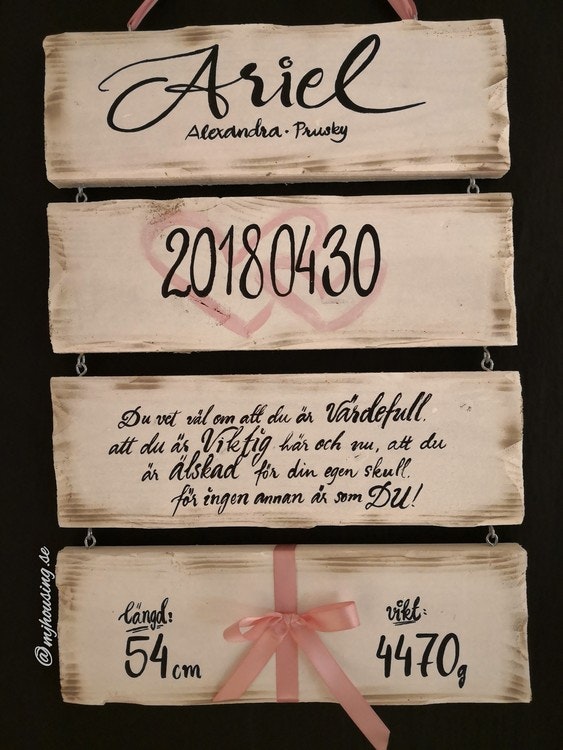 Ariel
Alexandra · Prusky
20180430
Du vet väl om att du är Värdefull.
att du är Viktig här och nu, att du
är älskad för din egen skull.
för ingen annan är som DU!
längd:
54 cm
vikt:
4470g
@mjhousing.se